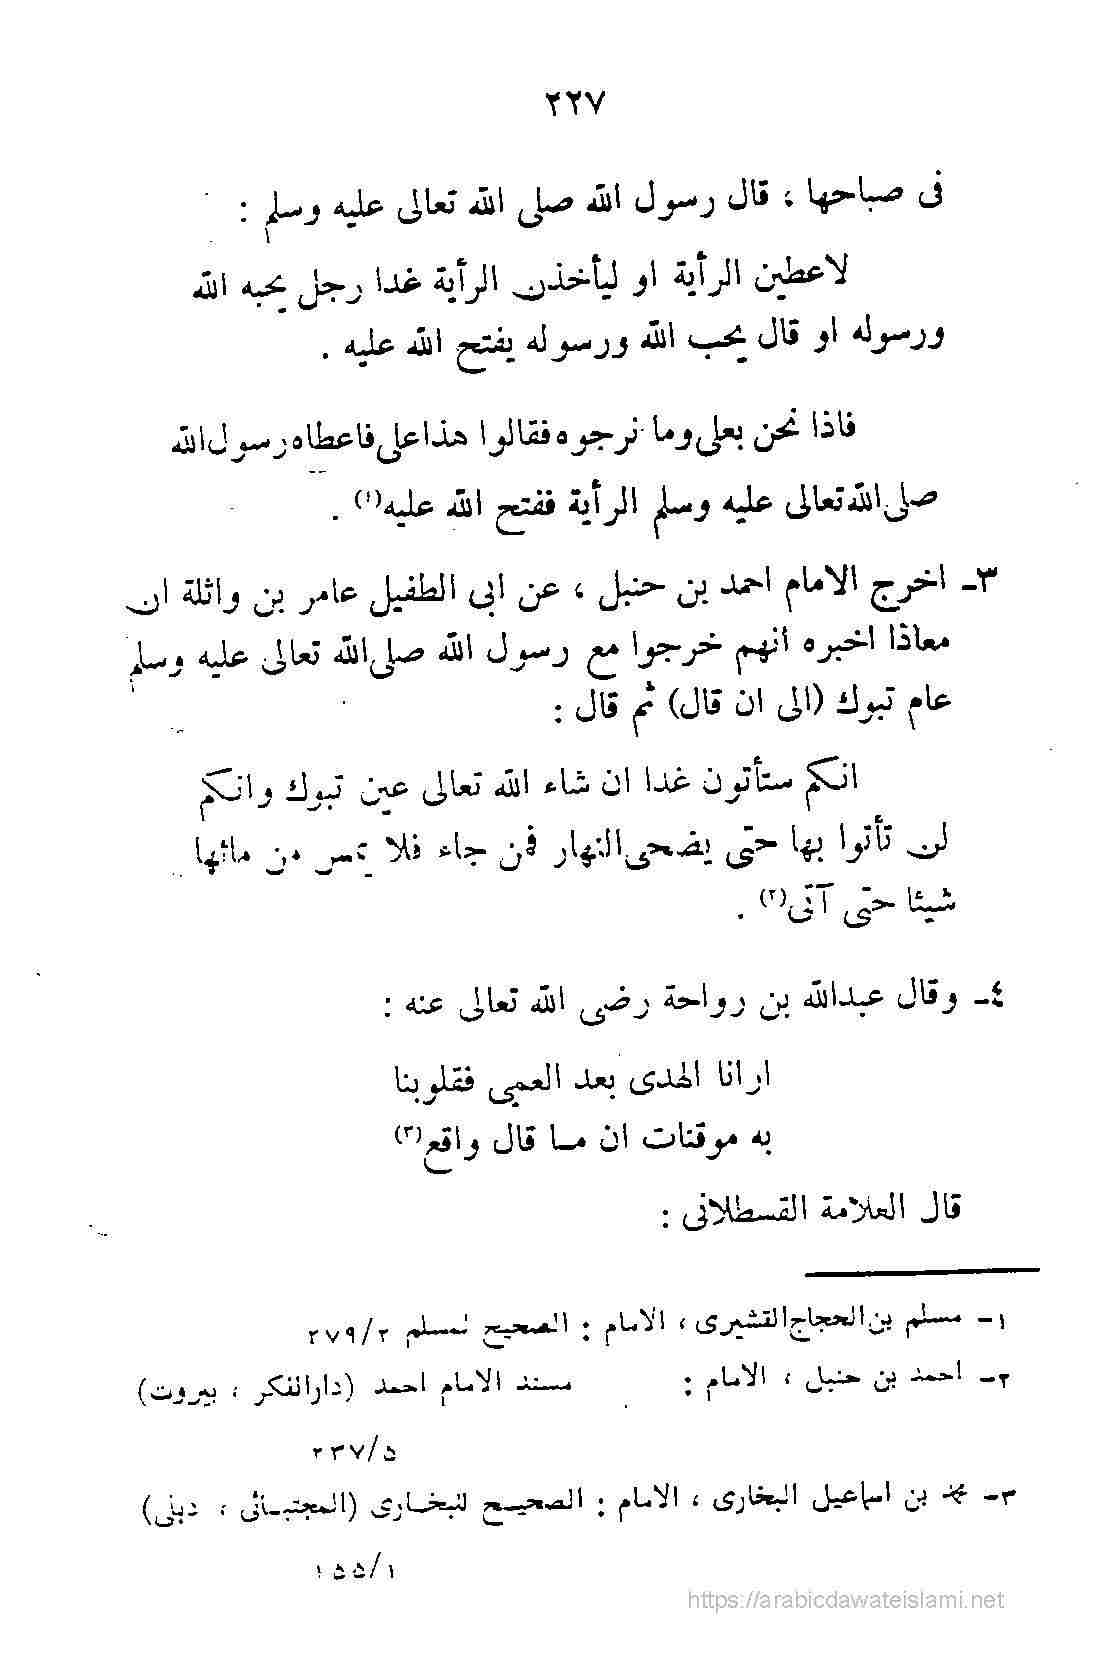 ٢٢٧
فى صباحها ، قال رسول الله صلى الله تعالى عليه وسلم :
لاعطين الرأية او ليأخذن الرأية غدا رجل يحبه الله
ورسوله او قال يحب الله ورسوله يفتح الله عليه .
فاذا نحن بعلى وما نرجوه فقالوا هذا على فاعطاه رسول الله
صلى الله تعالى عليه وسلم الرأية ففتح الله عليه(١) .
٣- اخرج الامام احمد بن حنبل ، عن ابى الطفيل عامر بن واثلة ان
معاذا اخبره انهم خرجوا مع رسول الله صلى الله تعالى عليه وسلم
عام تبوك (الى ان قال) ثم قال :
انكم ستأتون غدا ان شاء الله تعالى عين تبوك وانكم
لن تأتوا بها حتى يضحى النهار فمن جاء فلا يمس من مائها
شيئا حتى آتى(٢) .
٤- وقال عبدالله بن رواحة رضى الله تعالى عنه :
ارانا الهدى بعد العمى فقلوبنا
به موقنات ان ما قال واقع(٣)
قال العلامة القسطلانى :
١- مسلم بن الحجاج القشيرى ، الامام : الصحيح لمسلم ٢٧٩/٢
٢- احمد بن حنبل ، الامام : مسند الامام احمد (دارالفكر ، بيروت)
٢٣٧/٥
٣- محمد بن اسماعيل البخارى ، الامام : الصحيح للبخارى (المجتبائى ، دہلى)
١٥٥/١
https://arabicdawateislami.net